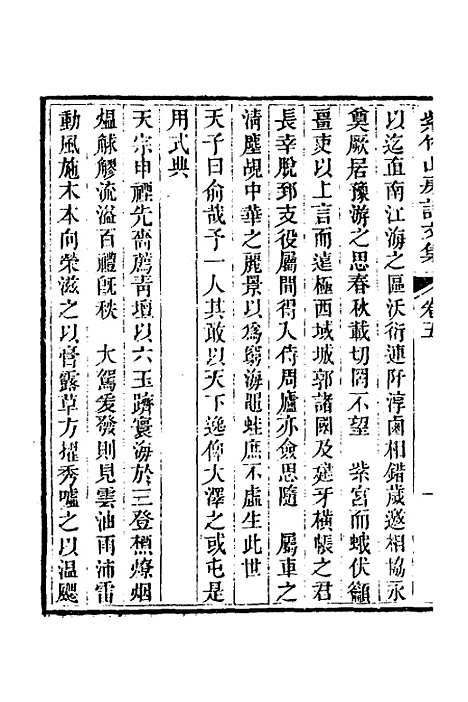 紫竹山房詩文集 卷五 一
以迄直南江海之區沃衍連阡淳鹵相錯歲邀相協永
奠厥居豫游之思春秋載切罔不望 紫宮而蛾伏籲
畺吏以上言而遠極西域城郭諸國及建牙橫帳之君
長幸脫郅支役屬間得入侍周廬亦僉思隨 屬車之
淸塵覘中華之麗景以爲窮海黽蛙庶不虛生此世
天子曰俞哉予一人其敢以天下逸俾大澤之或屯是
用式典
天宗申禋先嗇薦靑壇以六玉躋寰海於三登槱燎烟
熅觩觺流溢百禮旣秩 大駕爰發則見雲油雨沛雷
動風施木本向榮滋之以膏露草方擢秀噓之以温颸